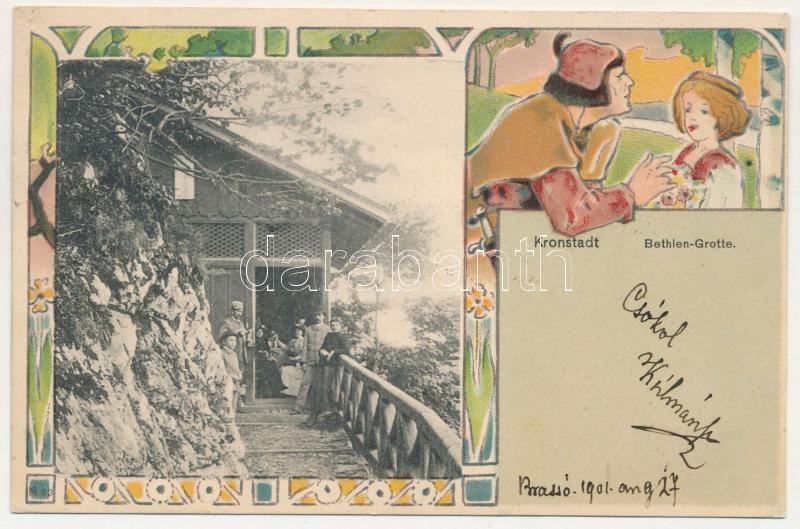 Kronstadt Bethlen-Grotte.
Csókol
Kálmánk
Brassó. 1901. aug 27
darabanth